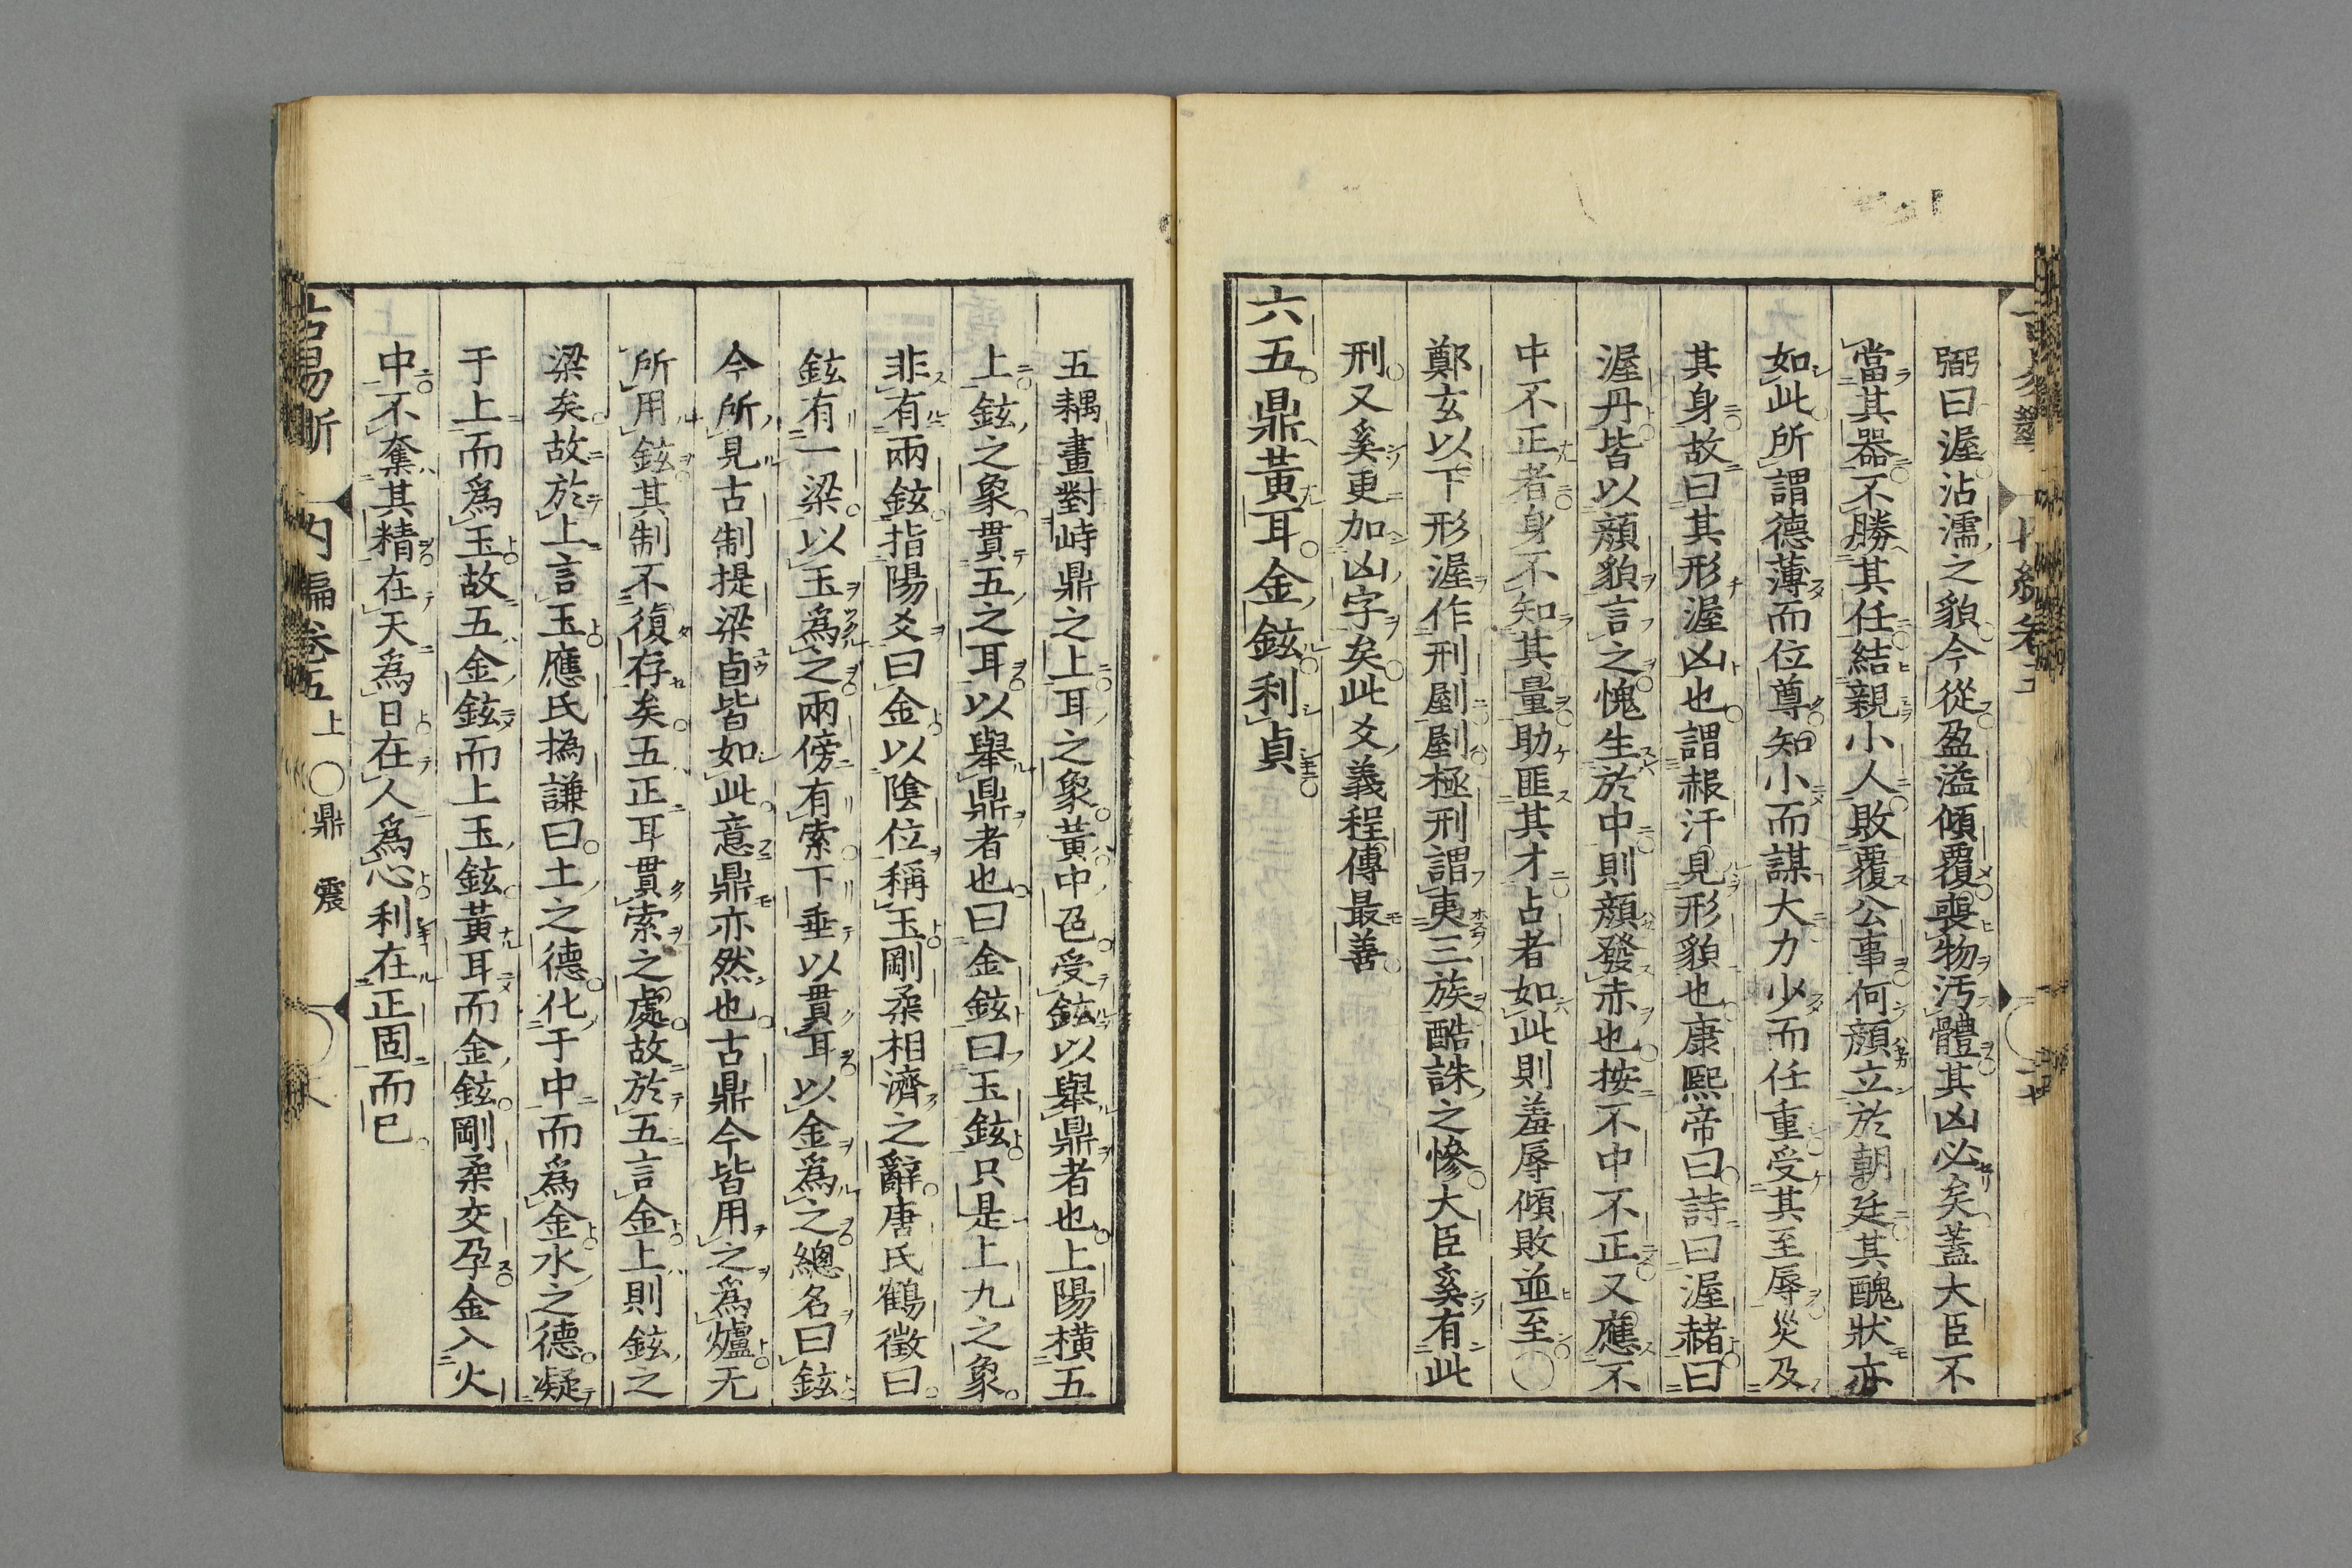 弼曰渥沾濡之貌今從盈溢傾覆喪物汚體其凶必矣蓋大臣不
當其器不勝其任結親小人敗覆公事何顏立於朝廷其醜狀亦
如此所謂德薄而位尊知小而謀大力少而任重受其至辱災及
其身故曰其形渥凶也謂赧汗見形貌也康熙帝曰詩曰渥赭曰
渥丹皆以顏貌言之愧生於中則顏發赤也按不中不正又應不
中不正者身不知其量助匪其才占者如此則羞辱傾敗並至〇
鄭玄以下形渥作刑剭剭極刑謂夷三族酷誅之慘大臣奚有此
刑又奚更加凶字矣此爻義程傳最善
六五鼎黃耳金鉉利貞
五耦畫對峙鼎之上耳之象黃中色受鉉以舉鼎者也上陽橫五
上鉉之象貫五之耳以舉鼎者也曰金鉉曰玉鉉只是上九之象
非有兩鉉指陽爻曰金以陰位稱玉剛柔相濟之辭唐氏鶴徵曰
鉉有一梁以玉為之兩傍有索下垂以貫耳以金為之總名曰鉉
今所見古制提梁卣皆如此意鼎亦然也古鼎今皆用之為爐无
所用鉉其制不復存矣五正耳貫索之處故於五言金上則鉉之
梁矣故於上言玉應氏撝謙曰土之德化于中而為金水之德凝
于上而為玉故五金鉉而上玉鉉黃耳而金鉉剛柔交孕金入火
中不奪其精在天為日在人為心利在正固而已
古易斷 内編卷五上 〇鼎 震